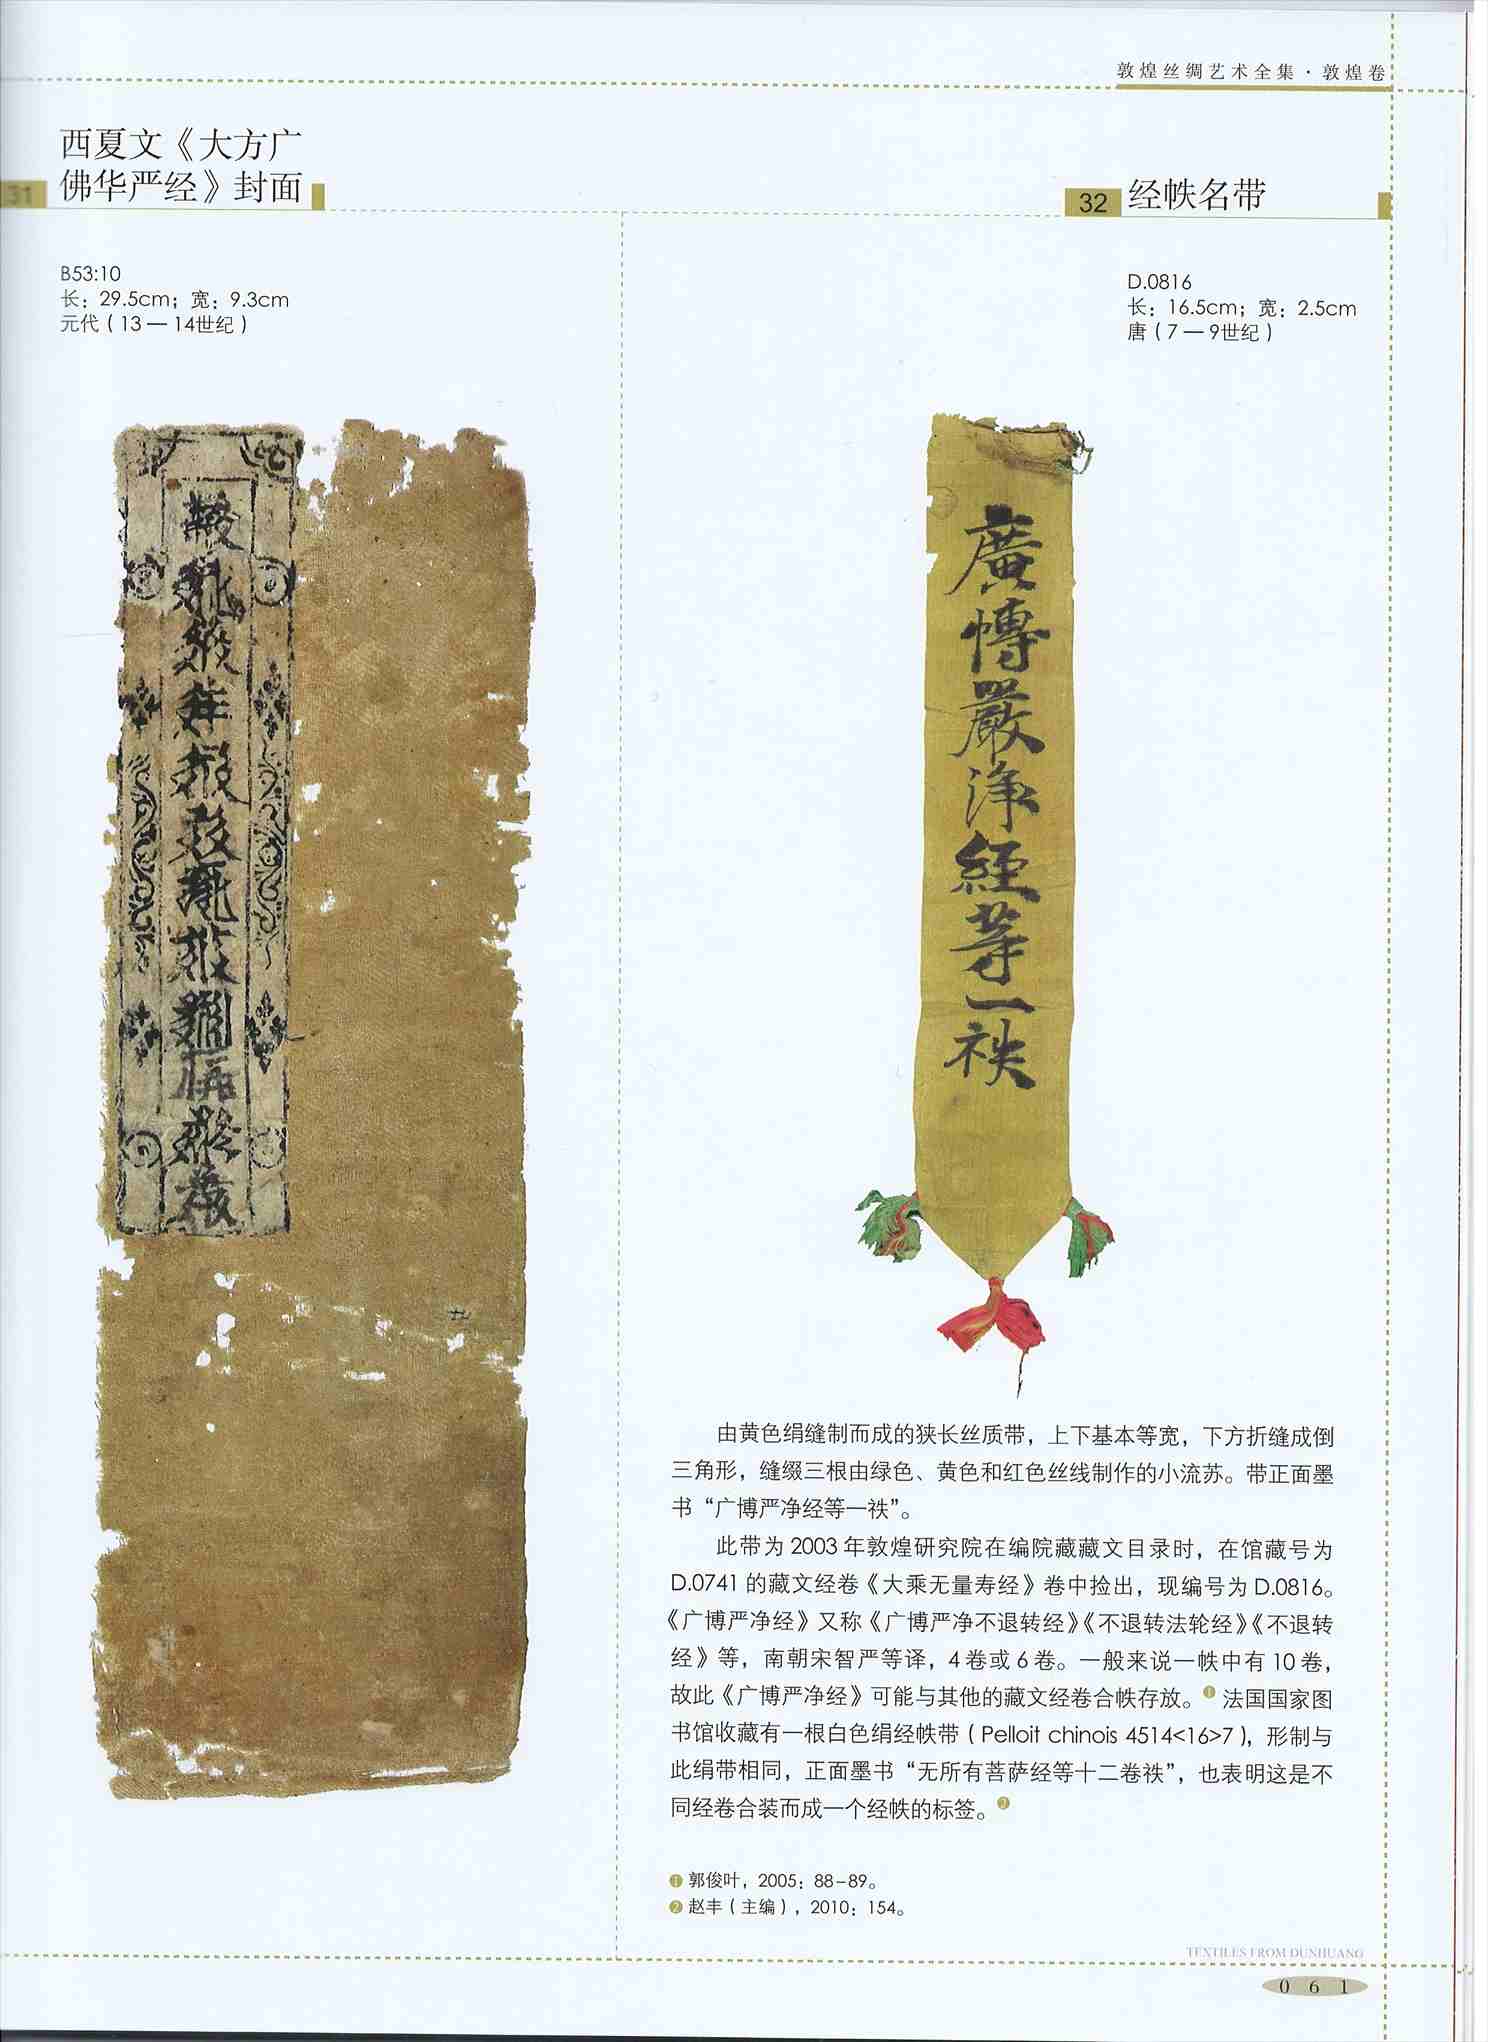 敦煌丝绸艺术全集·敦煌卷
31
西夏文《大方广
佛华严经》封面
B53:10
长：29.5cm；宽：9.3cm
元代（13—14世纪）
32
经帙名带
D.0816
长：16.5cm；宽：2.5cm
唐（7—9世纪）
廣博嚴淨經等一袟
由黄色绢缝制而成的狭长丝质带，上下基本等宽，下方折缝成倒
三角形，缝缀三根由绿色、黄色和红色丝线制作的小流苏。带正面墨
书“广博严净经等一袟”。
此带为2003年敦煌研究院在编院藏藏文目录时，在馆藏号为
D.0741的藏文经卷《大乘无量寿经》卷中捡出，现编号为D.0816。
《广博严净经》又称《广博严净不退转经》《不退转法轮经》《不退转
经》等，南朝宋智严等译，4卷或6卷。一般来说一帙中有10卷，
故此《广博严净经》可能与其他的藏文经卷合帙存放。❶法国国家图
书馆收藏有一根白色绢经帙带（Pelloit chinois 4514<16>7），形制与
此绢带相同，正面墨书“无所有菩萨经等十二卷袟”，也表明这是不
同经卷合装而成一个经帙的标签。❷
❶ 郭俊叶，2005：88–89。
❷ 赵丰（主编），2010：154。
TEXTILES FROM DUNHUANG
061